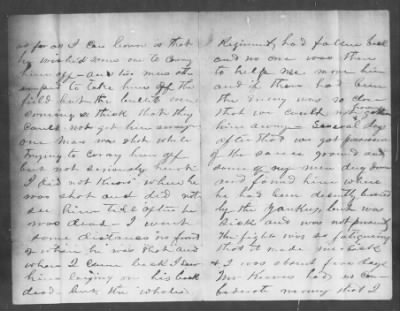 as far as I can learn is that
he wished some one to carry
him off - and two men at-
tempted to take him off the
field but the bullets were
coming so thick that they
could not get him away
one man was shot while
trying to carry him off
but not seriously hurt
I did not know when he
was shot and did not
see him till after he
was dead. I went
some distance in front
of where he was shot and
when I came back I saw
him laying on his back
dead. but the whole
Regiment, had fallen back
and no one was there
to help me move him
and if there had been
the enemy was so close
that we could not have gotten
him away - Several days
after that we got possession
of the same ground and
some of my men
and found him where
he had been decently buried
by the Yankeys, but was
sick and was not present
the fights was so fatiguing
that it made me sick
& I was about five days
Mr had no con-
federate money that I